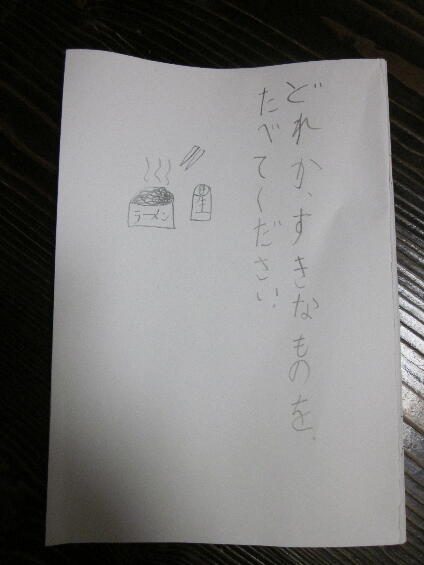 どれか、すきなものを、
たべてください。
ラーメン